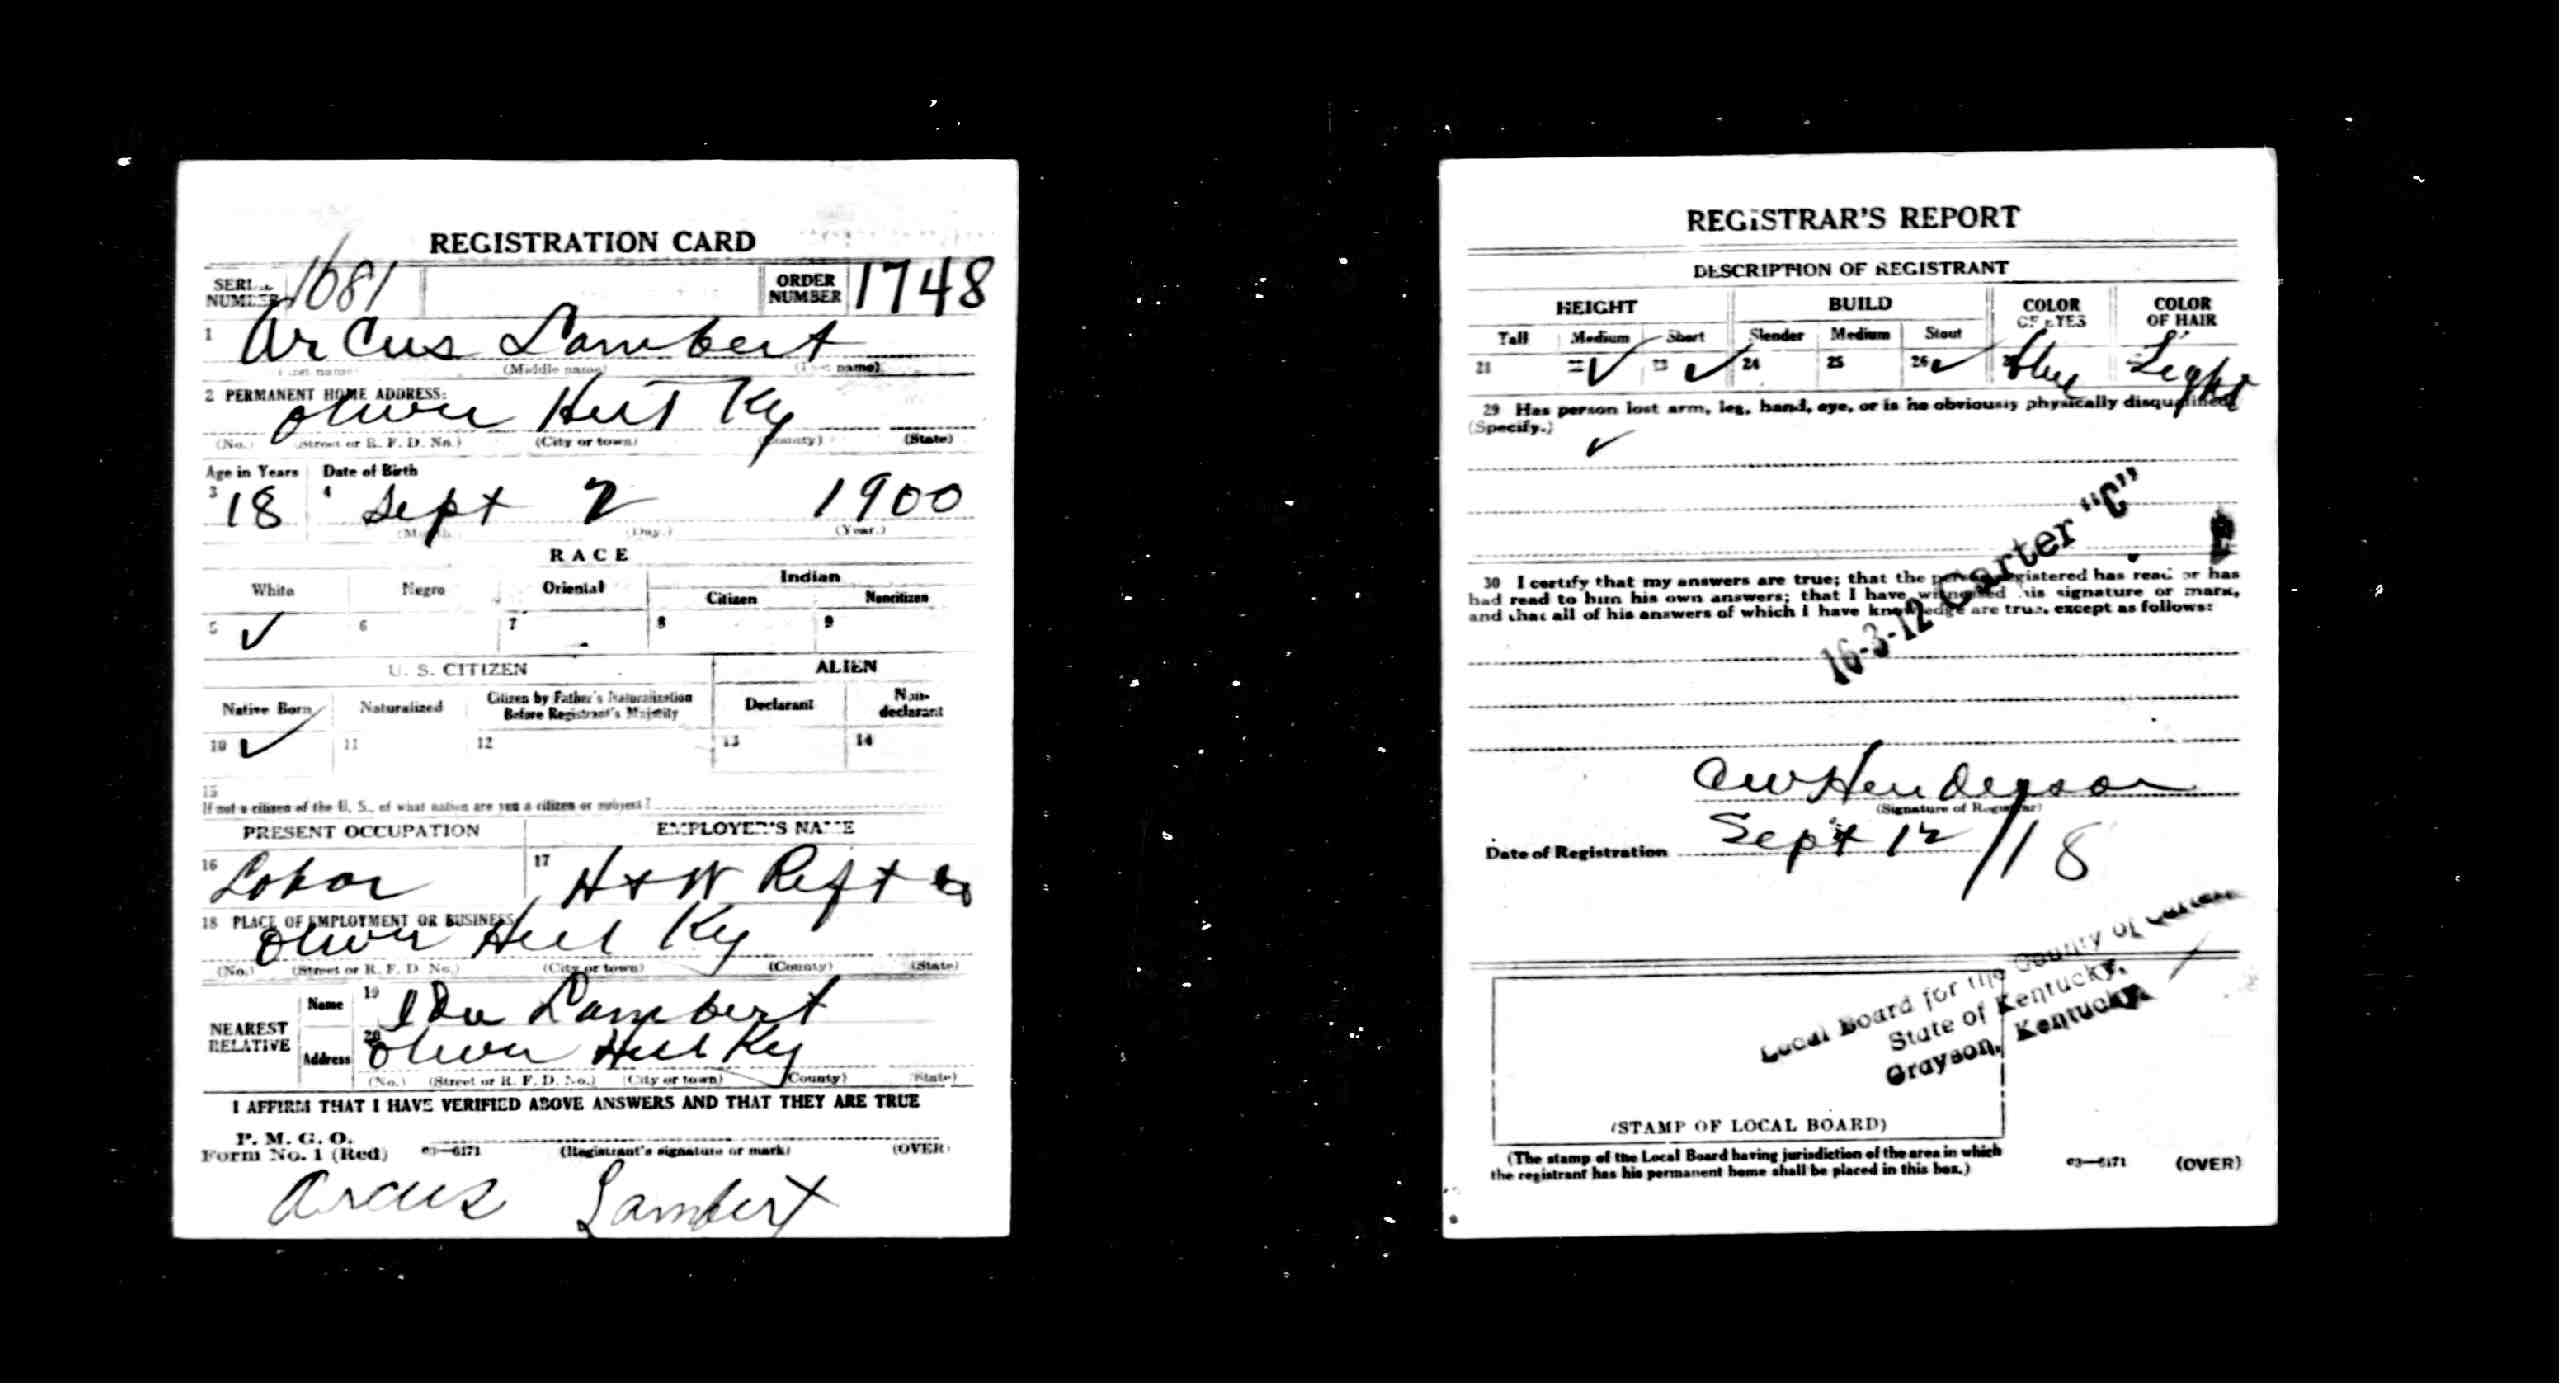 REGISTRATION CARD
SERIAL NUMBER 1681 ORDER NUMBER 1748
1 Arcus Lambert
(First name) (Middle name) (Last name)
2 PERMANENT HOME ADDRESS:
Olive Hill Ky
(No.) (Street or R. F. D. No.) (City or town) (County) (State)
Age in Years Date of Birth
3 18 4 Sept 2 1900
(Month.) (Day.) (Year.)
RACE
White Negro Oriental Indian
Citizen Noncitizen
5 ✓ 6 7 8 9
U. S. CITIZEN ALIEN
Native Born Naturalized Citizen by Father's Naturalization Before Registrant's Majority Declarant Non-declarant
10 ✓ 11 12 13 14
15
If not a citizen of the U. S., of what nation are you a citizen or subject?
PRESENT OCCUPATION EMPLOYER'S NAME
16 Labor 17 H & W Reft
18 PLACE OF EMPLOYMENT OR BUSINESS
Olive Hill Ky
(No.) (Street or R. F. D. No.) (City or town) (County) (State)
NEAREST RELATIVE
Name 19 Ida Lambert
Address 20 Olive Hill Ky
(No.) (Street or R. F. D. No.) (City or town) (County) (State)
I AFFIRM THAT I HAVE VERIFIED ABOVE ANSWERS AND THAT THEY ARE TRUE
P. M. G. O.
Form No. 1 (Red) 03—6171 (Registrant's signature or mark) (OVER)
Arcus Lambert
REGISTRAR'S REPORT
DESCRIPTION OF REGISTRANT
HEIGHT BUILD COLOR OF EYES COLOR OF HAIR
Tall Medium Short Slender Medium Stout
21 22 ✓ 23 ✓ 24 25 26 ✓ 27 Blue Light
29 Has person lost arm, leg, hand, eye, or is he obviously physically disqualified?
(Specify.)
✓
16-3-12 Carter "C"
30 I certify that my answers are true; that the person registered has read or has
had read to him his own answers; that I have witnessed his signature or mark,
and that all of his answers of which I have knowledge are true, except as follows:
CW Henderson
(Signature of Registrar)
Date of Registration Sept 12/18
Local Board for the County of Carter
State of Kentucky,
Grayson, Kentucky
(STAMP OF LOCAL BOARD)
(The stamp of the Local Board having jurisdiction of the area in which
the registrant has his permanent home shall be placed in this box.)
03—6171 (OVER)